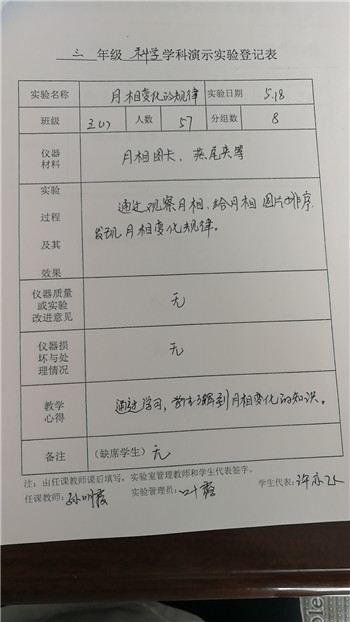 三 年级 科学 学科演示实验登记表
实验名称 月相变化的规律 实验日期 5.18
班级 三(1) 人数 57 分组数 8
仪器
材料 月相图卡、燕尾夹等
实验
过程
及其
效果
通过观察月相、给月相图片排序,
发现月相变化规律。
仪器质量
或实验
改进意见
无
仪器损
坏与处
理情况
无
教学
心得
通过学习,学生了解到月相变化的知识。
备注 (缺席学生) 无
注:由任课教师课后填写,实验室管理教师和学生代表签字。
任课教师:孙明霞 实验管理员:叶霞 学生代表:许亦